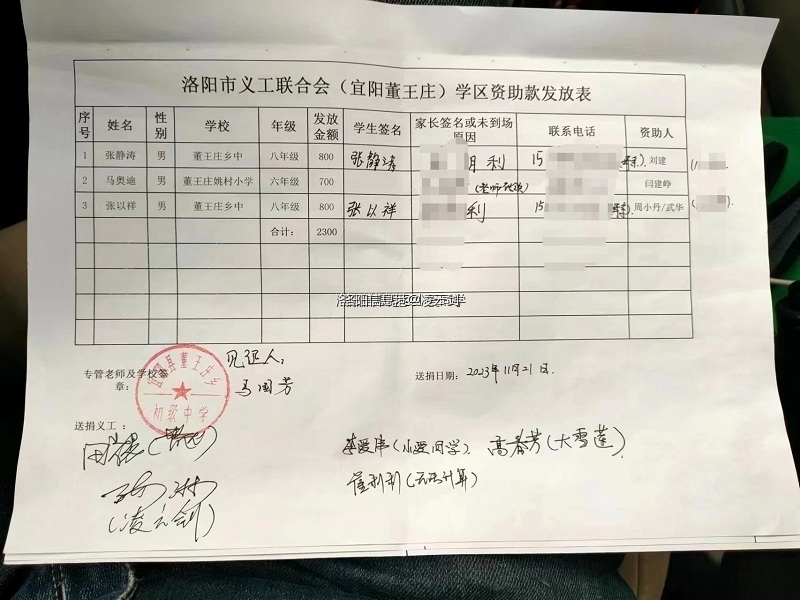 洛阳市义工联合会（宜阳董王庄）学区资助款发放表
序号 姓名 性别 学校 年级 发放金额 学生签名 家长签名或未到场原因 联系电话 资助人
1 张静涛 男 董王庄乡中 八年级 800 张静涛 月利 15 刘建
2 马奥迪 男 董王庄姚村小学 六年级 700 闫建峥
3 张以祥 男 董王庄乡中 八年级 800 张以祥 利 15 周小丹/武华
合计： 2300
专管老师及学校签章：
宜阳县董王庄乡初级中学
见证人：
马国芳
送捐日期：2023年11月21日.
送捐义工：
高春芳(大雪莲)
(凌云剑)